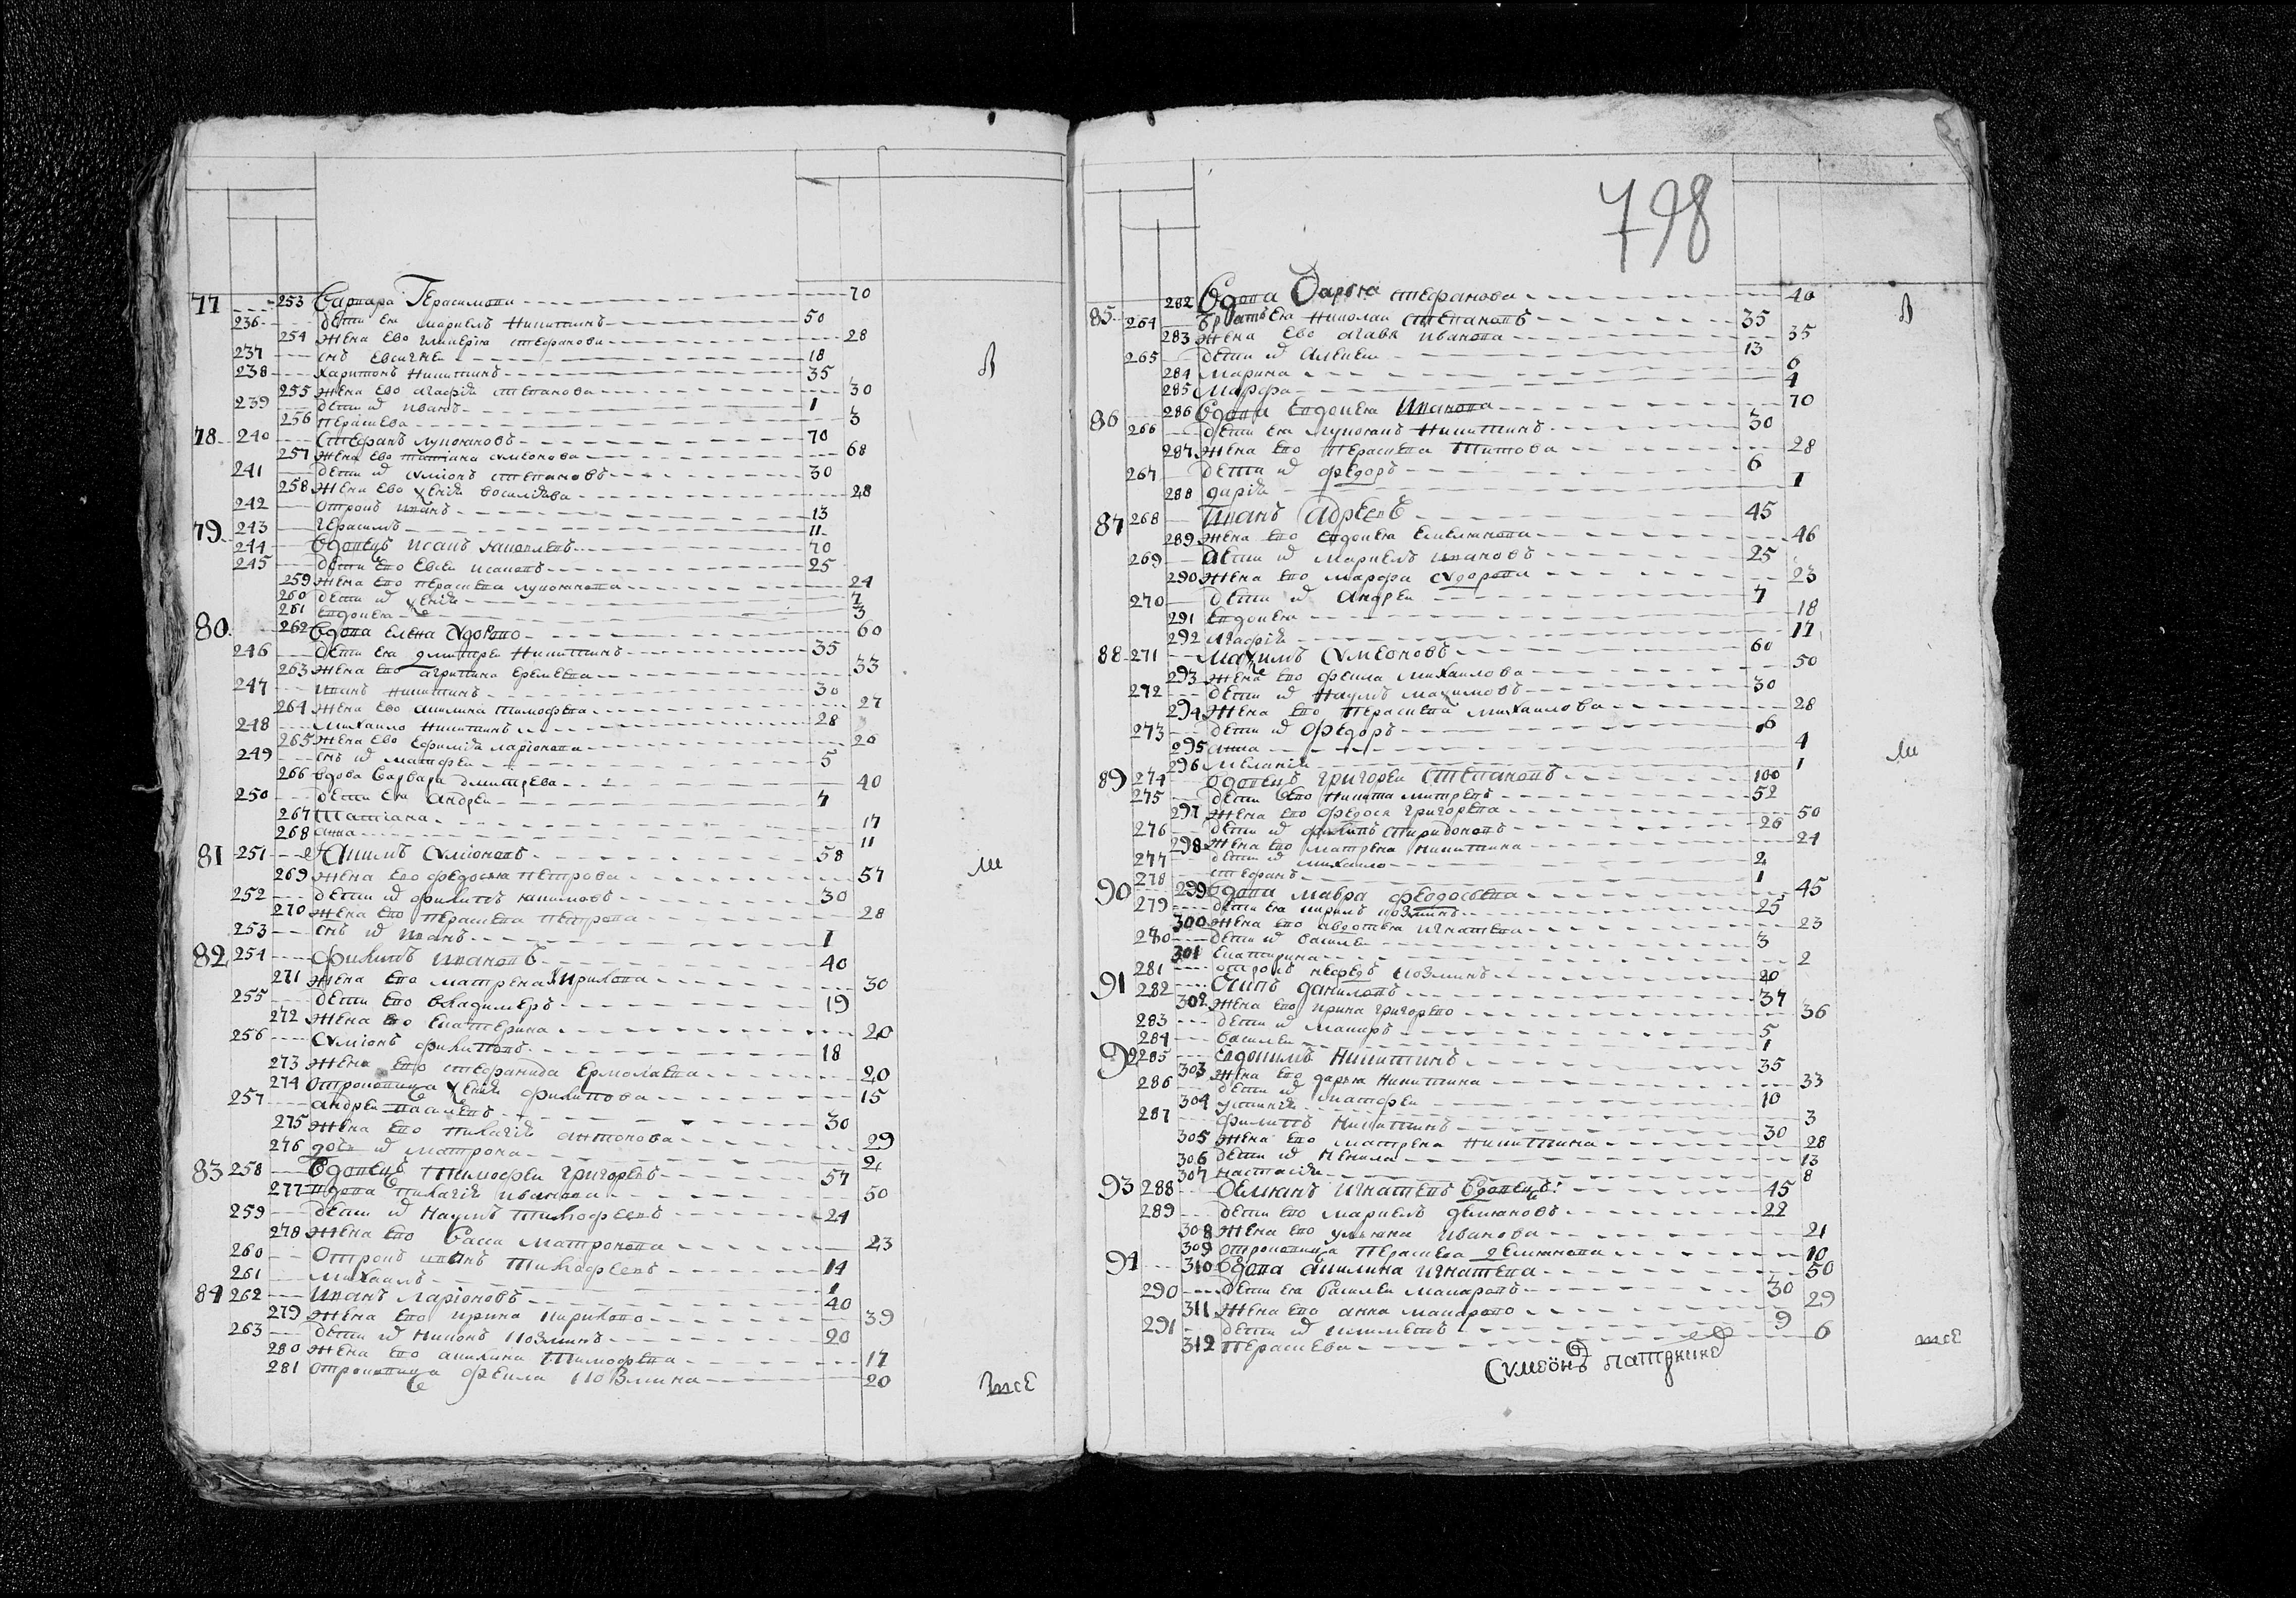 77 253 Варвара Герасимова 70
236 дети ея маркелъ Никитинъ 50
254 жена ево гликерия стефанова 28
237 снъ евсигней 18
238 харитонъ Никитинъ 35
255 жена ево агафия степанова 30
239 дети и иванъ 1
256 Пераскева 3
78 240 Стефанъ лукояновъ 70
257 жена ево татиана сумеонова 68
241 дети и сумионъ степановъ 30
258 жена ево ксения василиева 28
242 отрокъ иванъ 13
79 243 герасимъ 11
244 вдовецъ исакъ 70
245 дети ево евсеи исаковъ 25
259 жена ево пераскева лукоянова 24
260 дети и ксения 7
261 евдокея 3
80 262 вдова елена сидорова 60
246 дети ея дмитреи Никитинъ 35
263 жена ево агрипина еремеева 33
247 иванъ никитинъ 30
264 жена ево акилина тимофеева 27
248 михаило никитинъ 28
265 жена ево ефимия ларионова 20
249 снъ и матфеи 5
266 вдова варвара дмитрева 40
250 дети ея андреи 7
267 татиана 17
268 анна 11
81 251 Якимъ сумионовъ 58
269 жена ево федосия петрова 57
252 дети и филипъ якимовъ 30
270 жена ево пераскева петрова 28
253 снъ и иванъ 1
82 254 филипъ ивановъ 40
271 жена ево матрена кирилова 30
255 дети ево владимеръ 19
272 жена ево екатерина 20
256 сумионъ филиповъ 18
273 жена ево стефанида ермолаева 20
274 отроковица ксения филипова 15
257 андреи павловъ 30
275 жена ево пилагия антонова 29
276 дочь и матрона 2
83 258 вдовецъ тимофеи григоревъ 57
277 вдова пилагия иванова 50
259 дети и наумъ тимофеевъ 24
278 жена ево васса матронова 23
260 отрокъ иванъ тимофеевъ 14
261 михаилъ 1
84 262 иванъ ларионовъ 40
279 жена ево ирина кирилова 39
263 дети и никонъ козминъ 20
280 жена ево акилина тимофеева 17
281 отроковица фекла козмина 20
798
282 вдова Дарья стефанова 40
85 264 братъ ея николаи степановъ 35
283 жена ево агавя иванова 35
265 дети и алексеи 13
284 марина 6
285 марфа 4
86 286 вдова евдокея иванова 70
266 дети ея лукоянъ никитинъ 30
287 жена ево пераскева титова 28
267 дети и федоръ 6
288 дария 1
87 268 иванъ адреевъ 45
289 жена ево евдокея емелянова 46
269 дети и маркелъ ивановъ 25
290 жена ево марфа сидорова 23
270 дети и андреи 7
291 евдокея 18
292 агафия 17
88 271 максимъ сумеоновъ 60
293 жена ево фекла михаилова 50
272 дети и наумъ максимовъ 30
294 жена ево пераскева михаилова 28
273 дети и федоръ 6
295 анна 4
296 мелания 1
89 274 вдовецъ григореи степановъ 100
275 дети ево никита митревъ 52
297 жена ево федося григорева 50
276 дети и филипъ спиридоновъ 26
298 жена ево матрена никитина 24
277 дети и михаило 2
278 стефанъ 1
90 299 вдова мавра феодосьева 45
279 дети ея кирилъ козминъ 25
300 жена ево авдотья игнатева 23
280 дети и василеи 3
301 екатерина 2
281 отрокъ нефедъ козминъ 20
91 282 осипъ даниловъ 37
302 жена ево ирина григорева 36
283 дети и макаръ 5
284 василеи 1
92 285 евдокимъ никитинъ 35
303 жена ево дарья никитина 33
286 дети и матфеи 10
304 устиния 3
287 филипъ никитинъ 30
305 жена ево матрена никитина 28
306 дети и некила 13
307 настасия 8
93 288 Демянъ игнатевъ вдовецъ 45
289 дети ево маркелъ демяновъ 22
308 жена ево ульяна иванова 21
309 отроковица пераскева демянова 10
94 310 вдова акилина игнатева 50
290 дети ея василеи макаровъ 30
311 жена ево анна макарова 29
291 дети и климентъ 9
312 пераскева 6
Сумеонъ